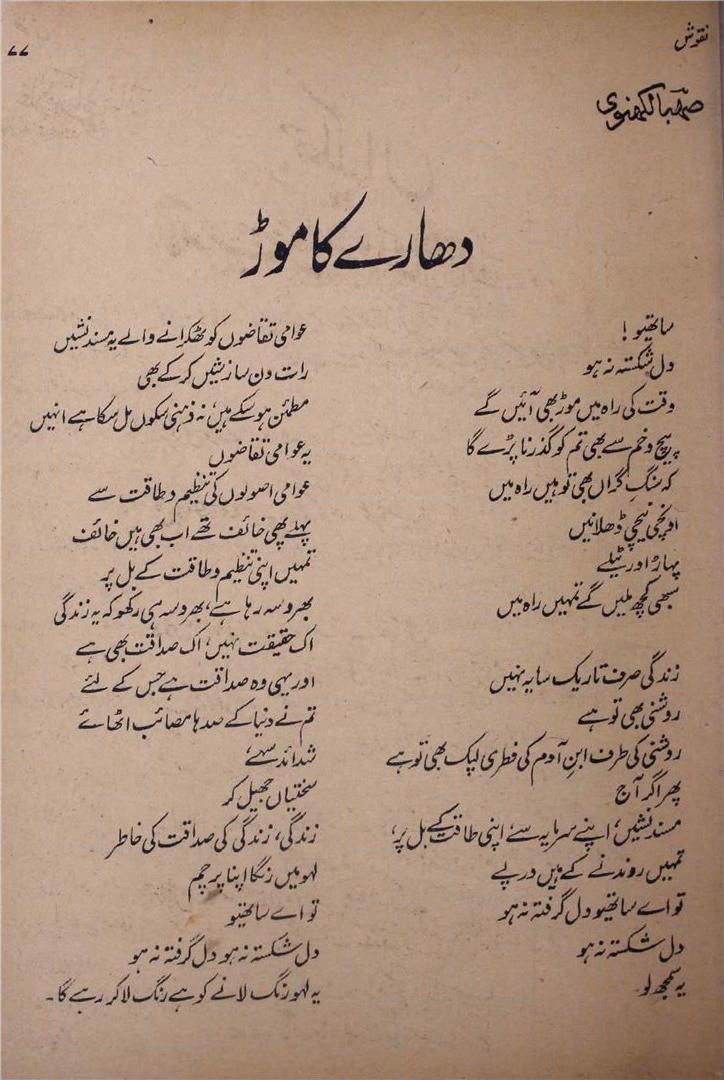 نقوش
۷۷
صہبا لکھنوی
دھارے کا موڑ
ساتھیو!
دل شکستہ نہ ہو
وقت کی راہ میں موڑ بھی آئیں گے
پیچ و خم سے بھی تم کو گذرنا پڑے گا
کہ سنگِ گراں بھی تو ہیں راہ میں
اونچی نیچی ڈھلانیں
پہاڑ اور ٹیلے
سبھی کچھ ملیں گے تمہیں راہ میں
زندگی صرف تاریک سایہ نہیں
روشنی بھی تو ہے
روشنی کی طرف ابنِ آدم کی فطری لپک بھی تو ہے
پھر اگر آج
مسند نشیں، اپنے سرمایہ سے، اپنی طاقت کے بل پر،
تمہیں روندنے کے ہیں درپے
تو اے ساتھیو دل گرفتہ نہ ہو
دل شکستہ نہ ہو
یہ سمجھ لو
عوامی تقاضوں کو ٹھکرانے والے یہ مسند نشیں
رات دن سازشیں کر کے بھی
مطمئن ہو سکے ہیں، نہ ذہنی سکوں مل سکا ہے انہیں
یہ عوامی تقاضوں
عوامی اصولوں کی تنظیم و طاقت سے
پہلے بھی خائف تھے اب بھی ہیں خائف
تمہیں اپنی تنظیم و طاقت کے بل پر
بھروسہ رہا ہے، بھروسہ ہی رکھو کہ یہ زندگی
اک حقیقت نہیں، اک صداقت بھی ہے
اور یہی وہ صداقت ہے جس کے لئے
تم نے دنیا کے صدہا مصائب اٹھائے
شدائد سہے
سختیاں جھیل کر
زندگی، زندگی کی صداقت کی خاطر
لہو میں رنگا اپنا پرچم
تو اے ساتھیو
دل شکستہ نہ ہو دل گرفتہ نہ ہو
یہ لہو رنگ لانے کو ہے رنگ لا کر رہے گا۔